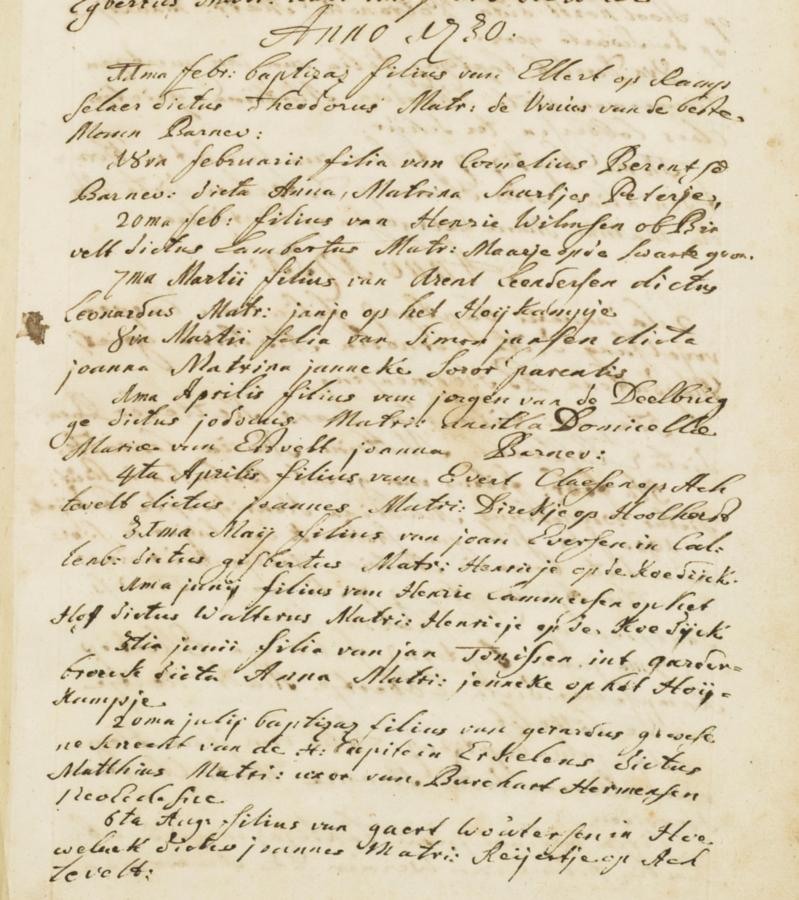 Anno 1730.
11ma febr: baptizaz filius van Ellert op Kamp
felaer dictus Theodorus Matr: de van de beste-
Barnev:
18va februarii filia van Cornelius Berentse
Barnev: dicta Anna, Matrina Saartjes Peterje,
20ma feb: filius van Henric Wilmsen
velt dictus Lambertus Matr: Maarje op de
7ma Martii filius van Arent Leendersen dictus
Leonardus Matr: janje op het Hoijkampje
8va Martii filia van Simon jansen dicta
joanna Matrina janneke soror parentis
Ama Aprilis filius van jorgen van de Deelbrug
ge dictus jodocus Matri: ancilla Domicelle
Mariæ van Estvelt joanna Barnev:
4ta Aprilis filius van Evert Claesen op Ach
tevelt dictus joannes Matri: Dirkje op Hoolhorst
31ma Maij filius van joan Eversen in Col-
lenb: dictus gisbertus Matr: Henricje op de Koedick.
Ama junij filius van Henric Lammersen op het
Hof dictus Walterus Matri: Henricje op de Koedijck
3tia junii filia van jan Tonissen int garder-
broeck dicta Anna Matri: jenneke op het Hoij-
kampje
20ma julij baptizaz filius van gerardus
ne knecht van de H: Capitein Erkelens dictus
Matthius Matri: uxor van Burchart Hermensen
6ta Aug: filius van gaert Woutersen in Hoe
velack dictus joannes Matri: Reijertje op Ach
tevelt: